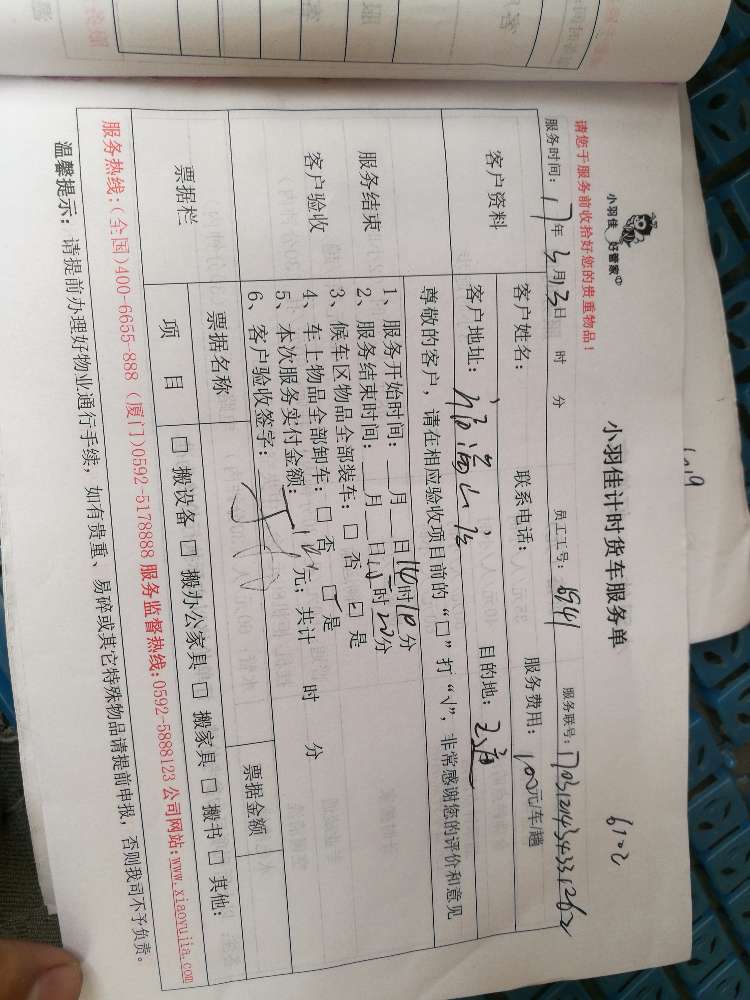 小羽佳 好管家
小羽佳计时货车服务单
6102
请您于服务前收拾好您的贵重物品！
服务时间：17年3月13日 时 分 员工工号：8941 服务联号：
客户资料
客户姓名： 联系电话： 服务费用：100元/车/趟
客户地址： 目的地：
尊敬的客户，请在相应验收项目前的“□”打“√”，非常感谢您的评价和意见
服务结束
客户验收
1、服务开始时间：__月__日10时10分
2、服务结束时间：__月__日10时20分
3、候车区物品全部装车：□ 否 □ 是
4、车上物品全部卸车：□ 否 □ 是
5、本次服务实付金额： 元；共计 时 分
6、客户验收签字：
票据栏
票据名称 票据金额
项 目 □ 搬设备 □ 搬办公家具 □ 搬家具 □ 搬书 □ 其他：
服务热线：(全国)400-6655-888 (厦门)0592-5178888 服务监督热线：0592-5888123 公司网站：www.xiaoyujia.com
温馨提示：请提前办理好物业通行手续，如有贵重、易碎或其它特殊物品请提前申报，否则我司不予负责。